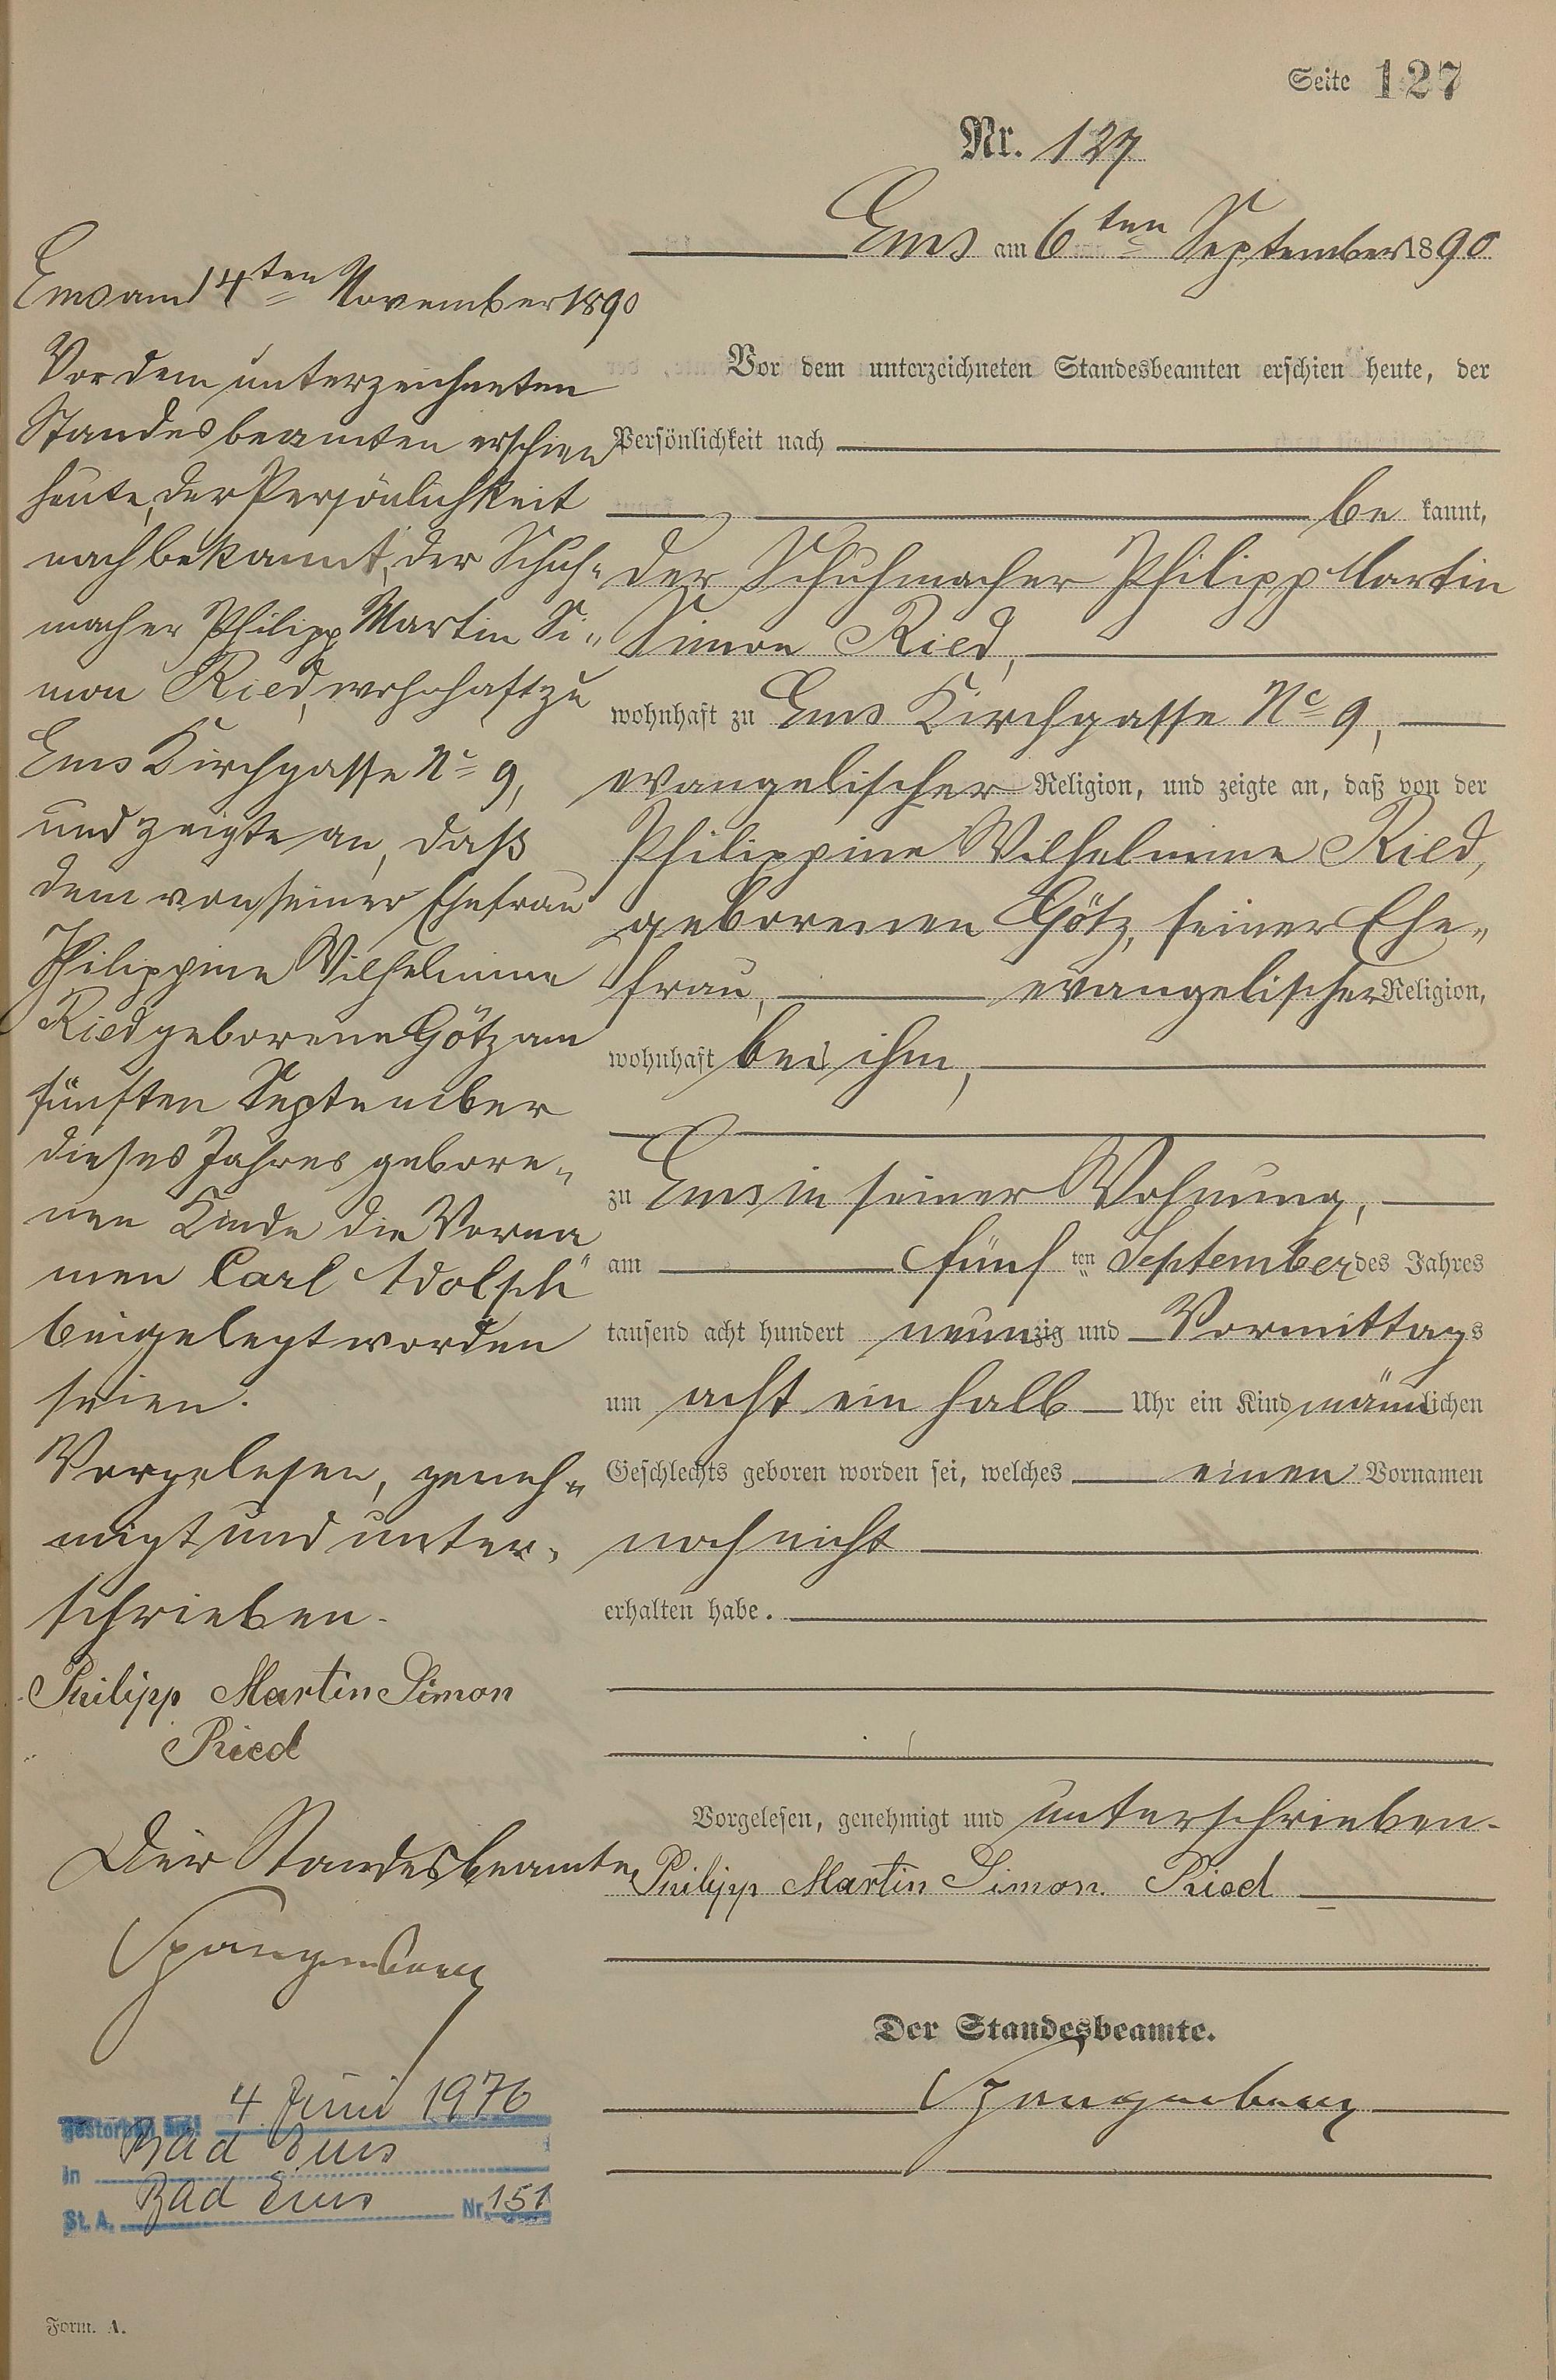 Seite 127
Nr. 127
Ems am 6ten September 1890
Vor dem unterzeichneten Standesbeamten erschien heute, der
Persönlichkeit nach
be kannt,
der Schuhmacher Philipp Martin
Simon Ried,
wohnhaft zu Ems Kirchgasse No 9,
evangelischer Religion, und zeigte an, daß von der
Philippine Wilhelmine Ried,
geborenen Götz, seiner Ehe„
frau, evangelischer Religion,
wohnhaft bei ihm,
zu Ems in seiner Wohnung,
am fünf ten September des Jahres
tausend acht hundert neunzig und Vormittags
um acht ein halb Uhr ein Kind männlichen
Geschlechts geboren worden sei, welches einen Vornamen
noch nicht
erhalten habe.
Vorgelesen, genehmigt und unterschrieben.
Philipp Martin Simon. Ried
Der Standesbeamte.
Spangenberg
Ems am 14ten November 1890
Vor dem unterzeichneten
Standesbeamten erschien
heute, der Persönlichkeit
nach bekannt, der Schuh„
macher Philipp Martin Si„
mon Ried, wohnhaft zu
Ems Kirchgasse No 9,
und zeigte an, daß
dem von seiner Ehefrau
Philippine Wilhelmine
Ried geborene Götz am
fünften September
dieses Jahres gebore„
nen Kinde die Vorna„
men Carl Adolph
beigelegt worden
seien.
Vorgelesen, geneh„
migt und unter„
schrieben.
Philipp Martin Simon
Ried
Der Standesbeamte
Spangenberg
gestorben am: 4. Juni 1976
in Bad Ems
St. A. Bad Ems Nr. 151
Form. A.